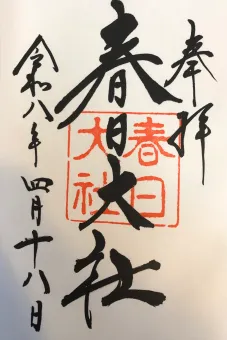 奉拝
春日大社
春日
大社
令和八年 四月十八日